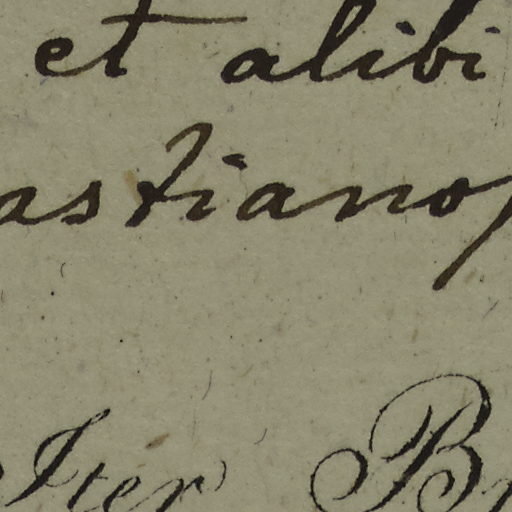 et alibi
astianop
Iter B